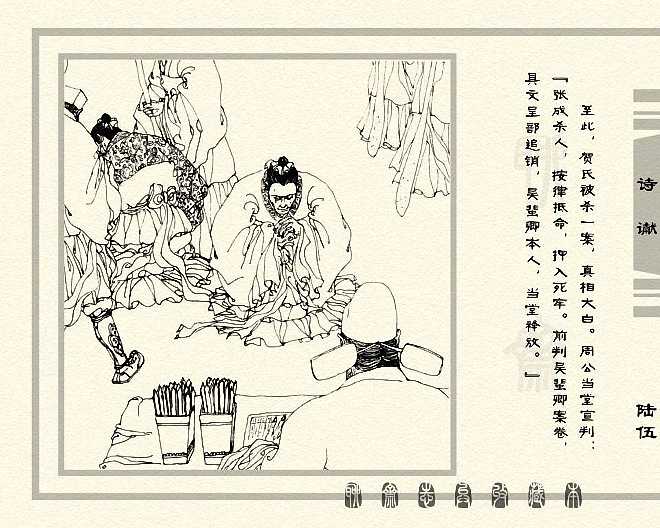 至此，贺氏被杀一案，真相大白。周公当堂宣判：
「张成杀人，按律抵命，押入死牢。前判吴蜚卿案卷，
具文呈部追销，吴蜚卿本人，当堂释放。」
诗谳
陆伍